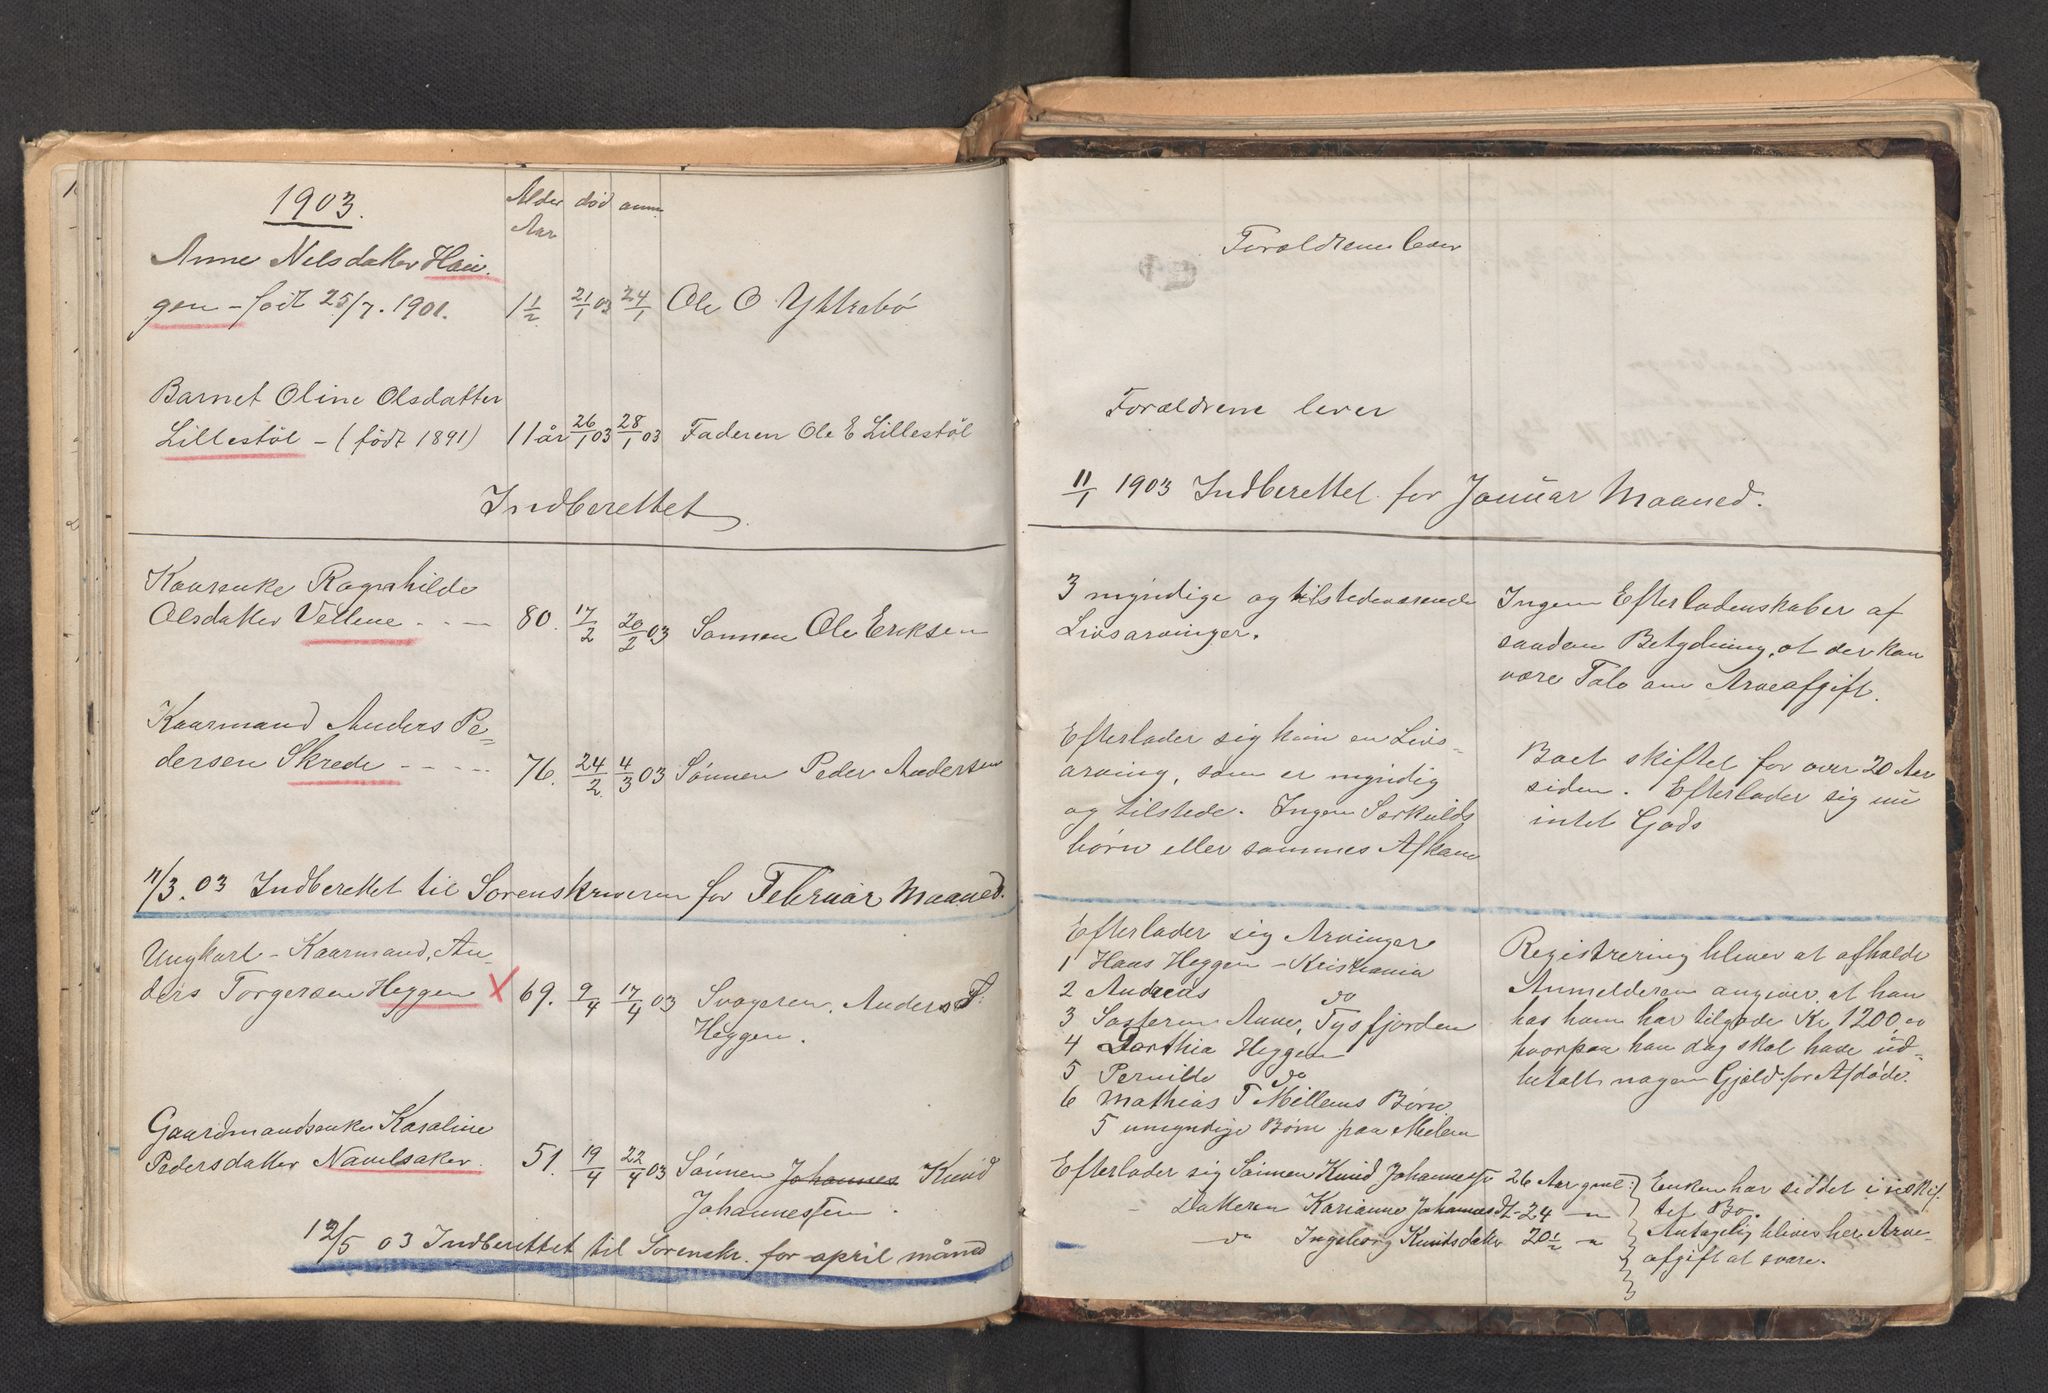 1903.
Alder død anm.
Aar
Anne Nilsdatter Hau
gen - født 25/7. 1901. 1 1/2 21/1 03 24/1 Ole O Yttrebø
Barnet Oline Olsdatter
Lillestöl - (født 1891) 11 år 26/1 03 28/1 03 Faderen Ole E Lillestöl
Indberettet
Kaarenke Ragnhilde
Olsdatter Vellene - - - 80. 17/2 20/2 03 Sønnen Ole Eriksen
Kaarmand Anders Pe=
dersen Skrede - - - - - 76. 24/2. 4/3 03 Sønnen Peder Andersen
11/3. 03 Indberettet til Sorenskriveren for Februar Maaned.
Ungkarl - Kaarmand, An-
ders Torgersen Heggen X 69. 9/4 17/4 03 Svogeren, Anders
Heggen.
Gaardmandsenke Karoline
Pedersdatter Navelsaker. 51. 19/4 22/4 03 Sønnen Johannes Knud
Johannessen.
12/5 03 Indberettet til Sorenskr. for april månед
Foraldrene lever
Foraldrene lever
11/1 1903 Indberettet for Januar Maaned.
3 myndige og tilstedeværende
Livsarvinger.
Ingen Efterladenskaber af
saadan Betydning, at der kan
være Tale om Arveafgift.
Efterlader sig kun en Livs-
arving, som er myndig
og tilstede. Ingen Særkulds
børn eller sammes Afkom
Boet skiftet for over 20 Aar
siden. Efterlader sig nu
intet Gods
Efterlader sig Arvinger
1 Hans Heggen - Kristiania
2 Andreas do
3 Søsteren Anne, Tysfjorden
4 Dorthia Heggen
5 Pernille do
6 Mathias T Mellems Børn
5 umyndige Børn paa Melem
Registrering bliver at afholde
Anmelderen angiver, at han
hos ham har tilgode Kr. 1200 00
hvorpaa han dog skal have ud-
betalt nogen Gjæld for Afdøde.
Efterlader sig Sønnen Knud Johannessen 26 Aar gml.
Datteren Karianne Johannesd. - 24 - "
do Ingeborg Knutsdatter 20 1/2 - "
Enken har siddet i uskif
tet Bo.
Antagelig bliver her Arve-
afgift at svare.